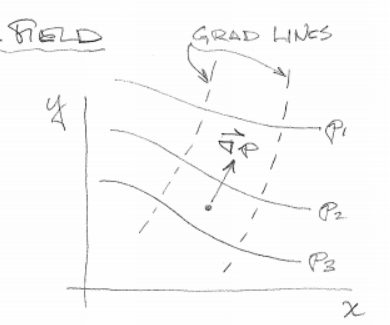 FIELD
GRAD LINES
y
P1
∇P
P2
P3
x